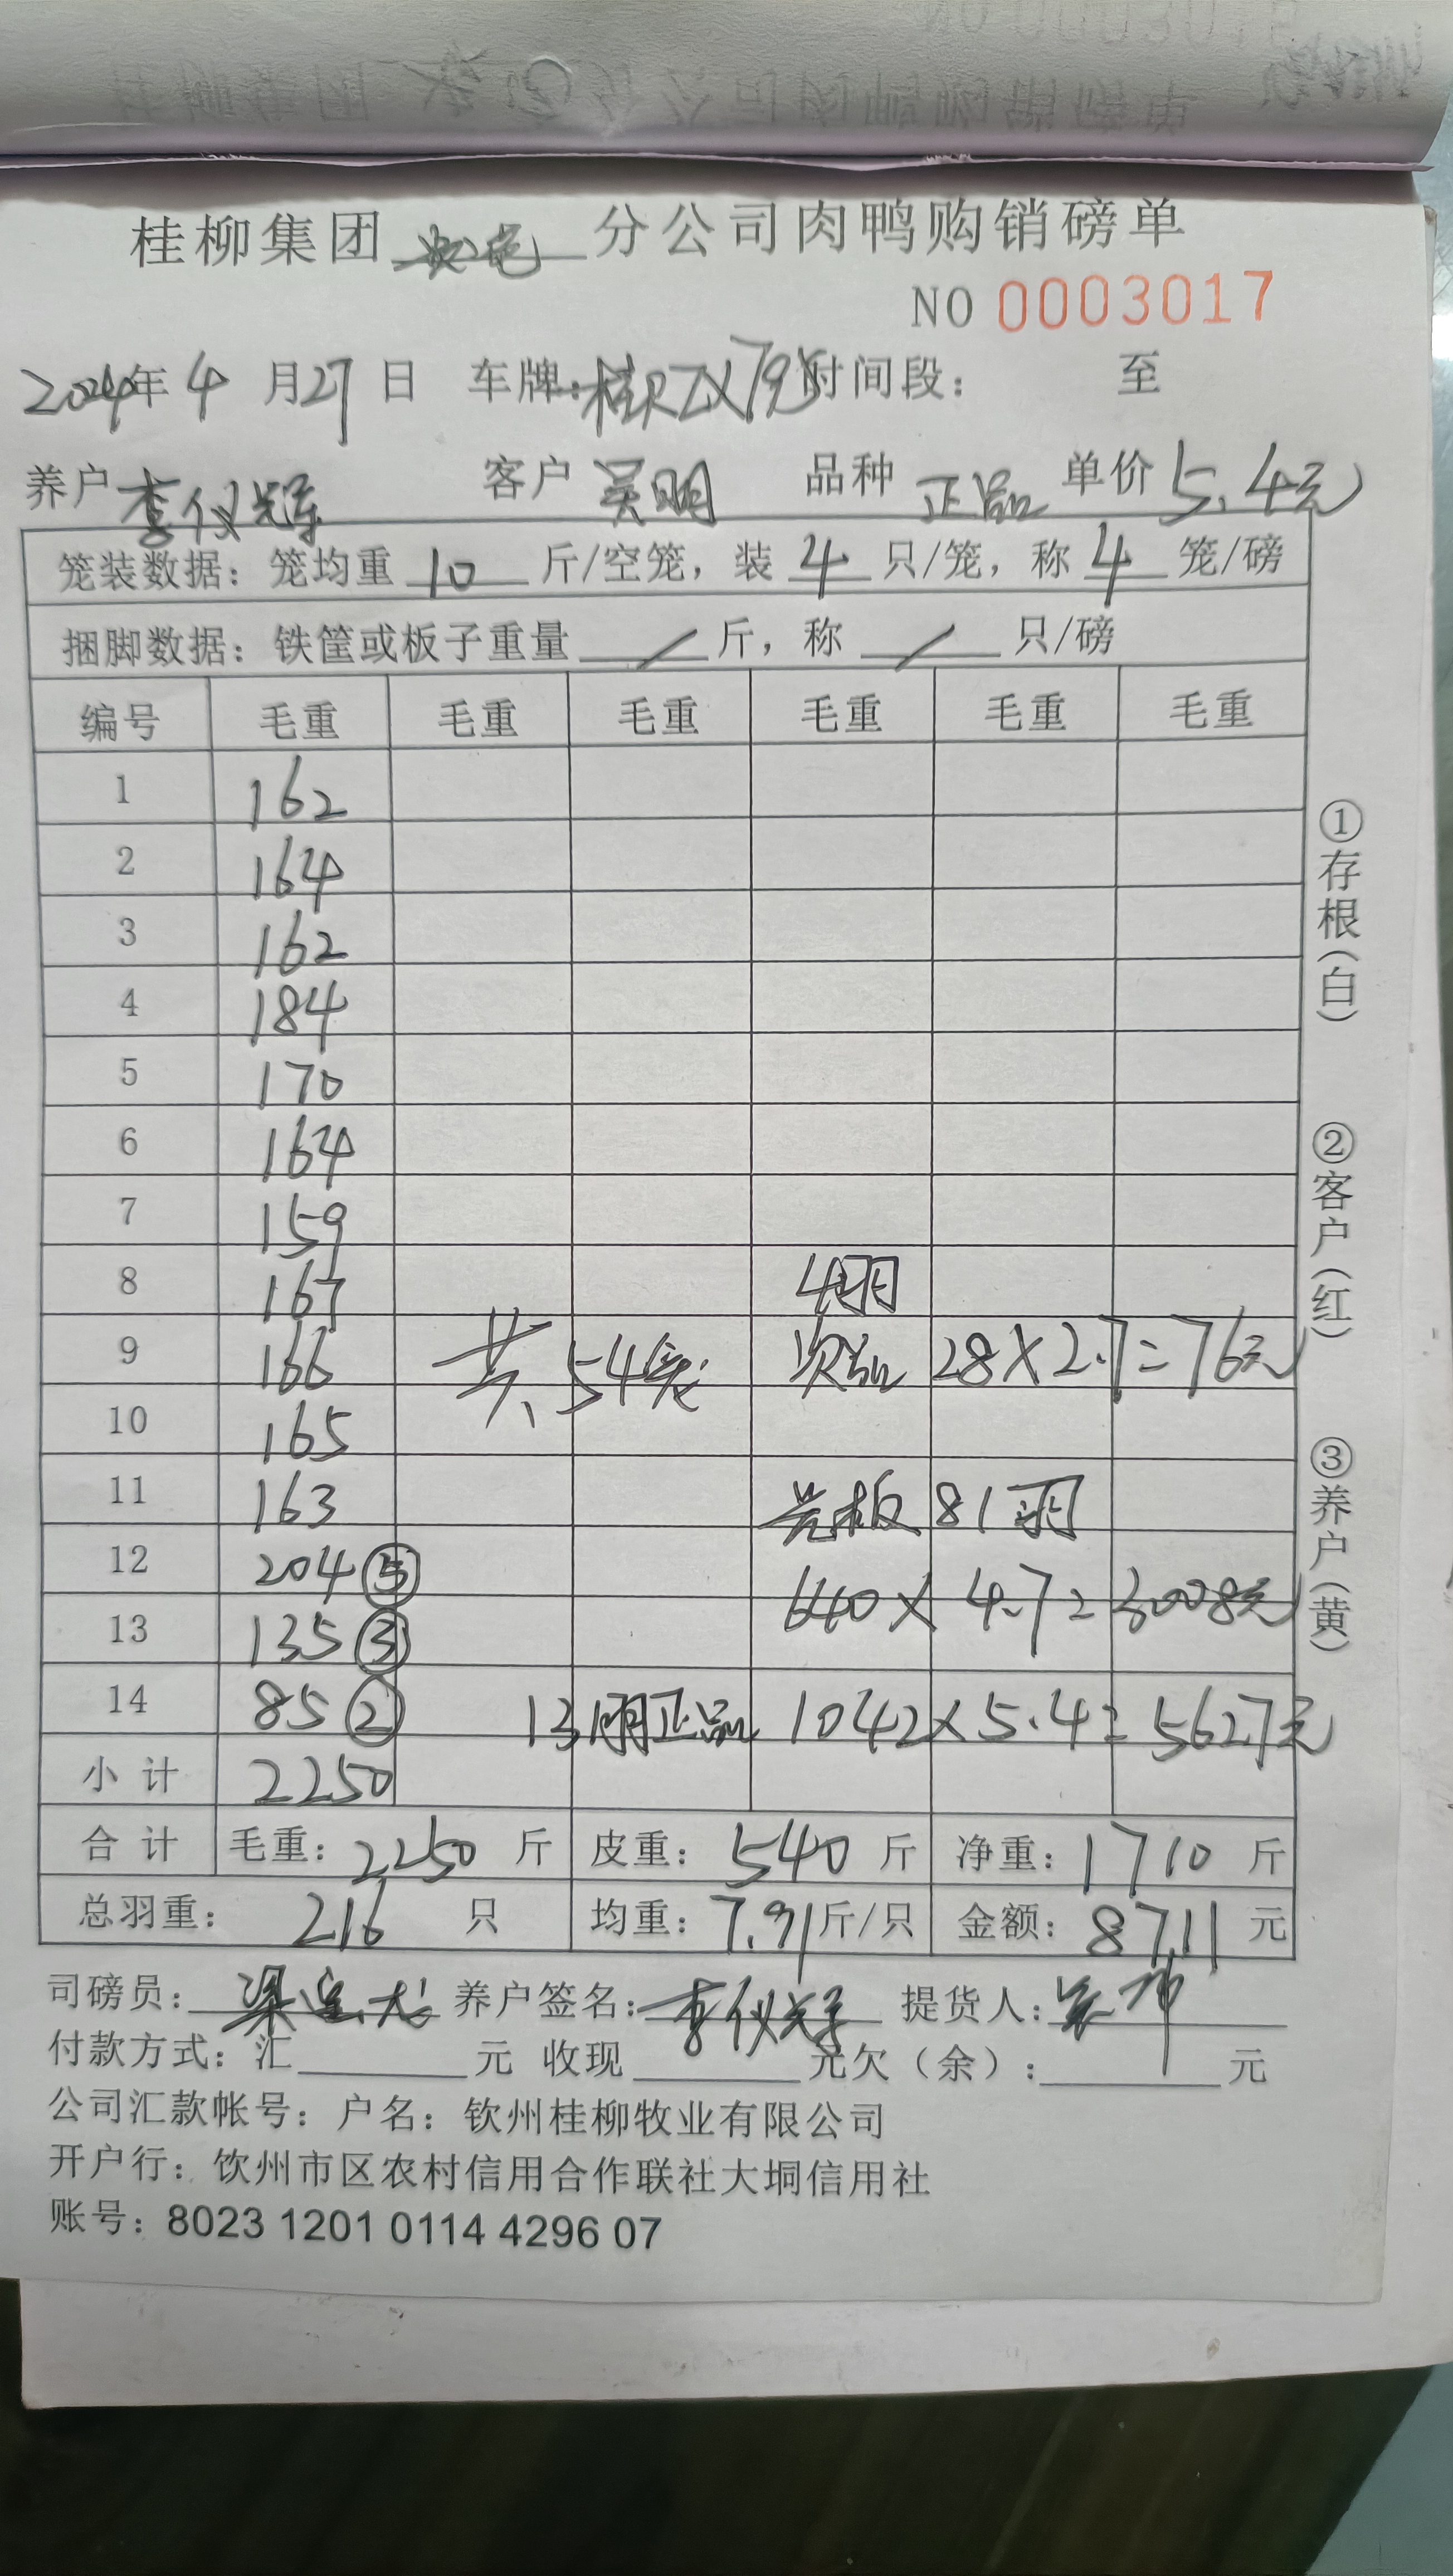 桂柳集团 分公司肉鸭购销磅单
NO 0003017
2024年 4 月 27 日 车牌: 时间段: 至
养户 李仪辉 客户 吴明 品种 正品 单价 5.4元
笼装数据: 笼均重 10 斤/空笼, 装 4 只/笼, 称 4 笼/磅
捆脚数据: 铁筐或板子重量 / 斤, 称 / 只/磅
编号 毛重 毛重 毛重 毛重 毛重 毛重
1 162
2 164
3 162
4 184
5 170
6 164
7 159
8 167 4羽
9 166 共54笼 次品 28×2.7=76元
10 165
11 163 光板 81羽
12 204⑤ 640×4.7=3008元
13 135③
14 85② 131羽正品 1042×5.4=5627元
小 计 2250
合 计 毛重: 2250 斤 皮重: 540 斤 净重: 1710 斤
总羽重: 216 只 均重: 7.91斤/只 金额: 8711 元
司磅员: 养户签名: 李仪辉 提货人:
付款方式: 汇 元 收现 元欠(余): 元
公司汇款帐号: 户名: 钦州桂柳牧业有限公司
开户行: 钦州市区农村信用合作联社大垌信用社
账号: 8023 1201 0114 4296 07
①存根(白)
②客户(红)
③养户(黄)